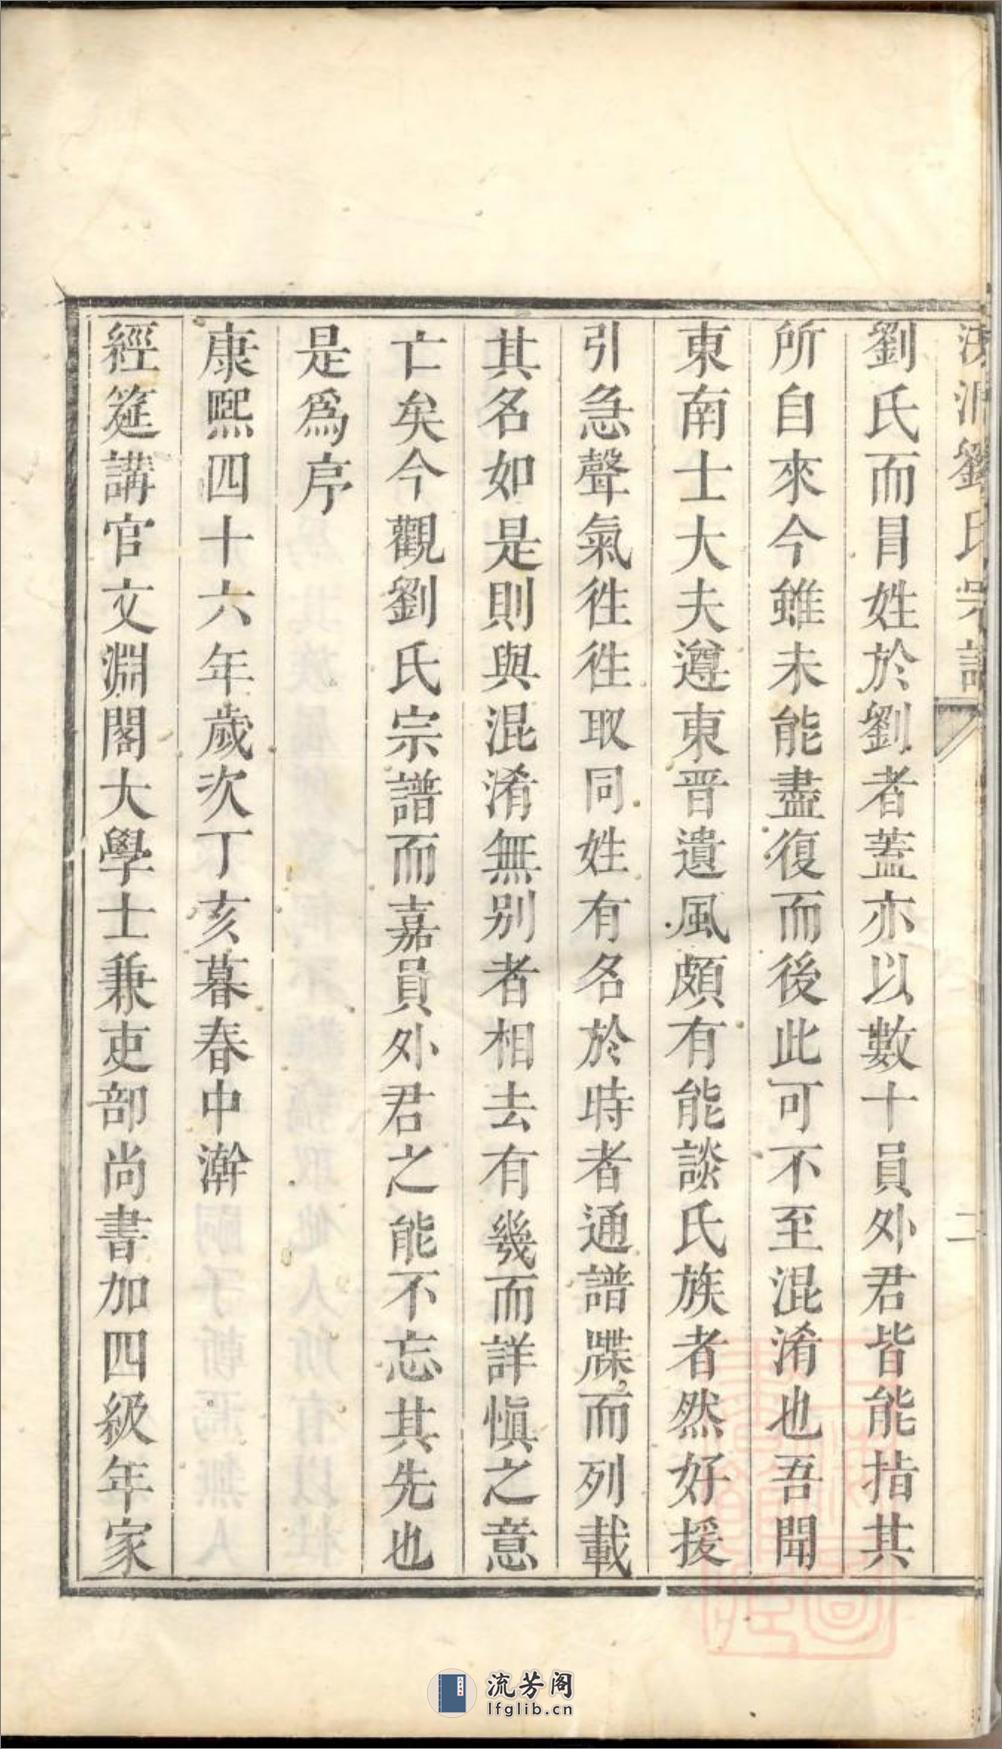 洪洞劉氏宗譜 二
劉氏而冒姓於劉者蓋亦以數十員外君皆能指其
所自來今雖未能盡復而後此可不至混淆也吾聞
東南士大夫遵東晉遺風頗有能談氏族者然好援
引急聲氣徃徃取同姓有名於時者通譜牒而列載
其名如是則與混淆無別者相去有幾而詳慎之意
亡矣今觀劉氏宗譜而嘉員外君之能不忘其先也
是爲序
康熙四十六年歲次丁亥暮春中澣
經筵講官文淵閣大學士兼吏部尚書加四級年家
流芳阁
lfglib.cn